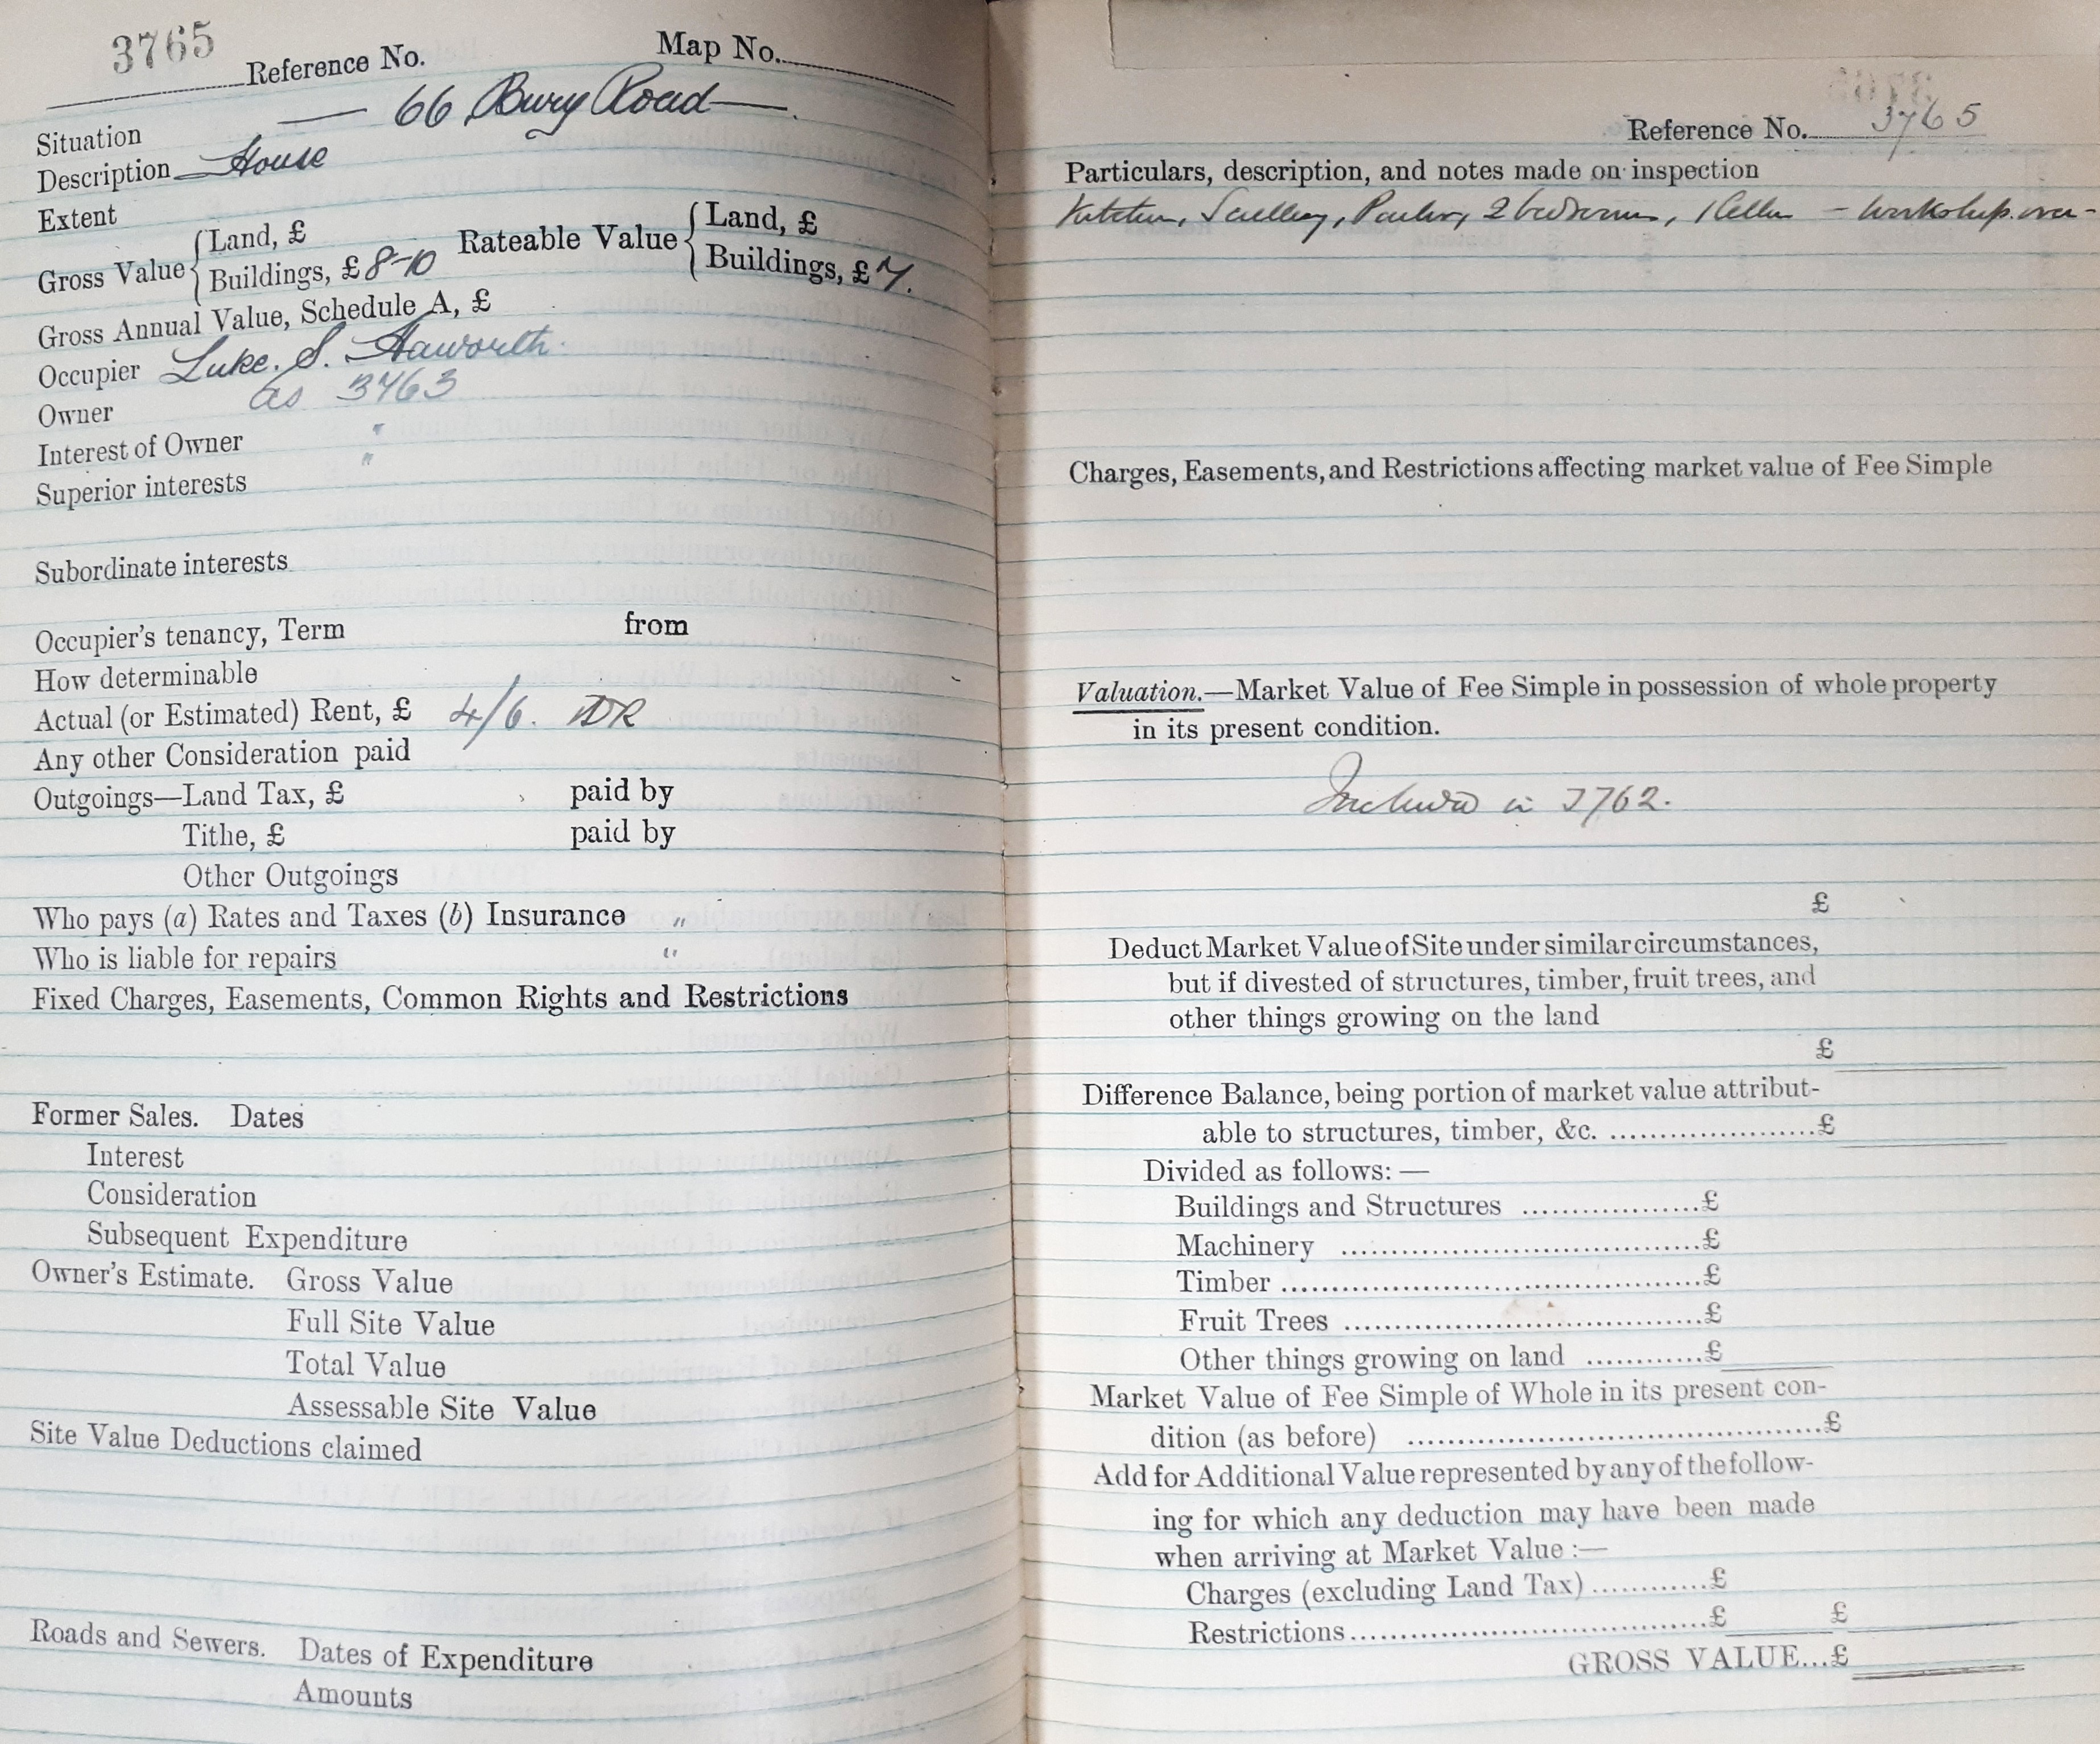 3765 Reference No. Map No.
Situation — 66 Bury Road —
Description House
Extent
Gross Value { Land, £ Rateable Value { Land, £
Buildings, £ 8-10 Buildings, £ 7.
Gross Annual Value, Schedule A, £
Occupier Luke. S. Haworth.
Owner as 3763
Interest of Owner "
Superior interests "
Subordinate interests
Occupier's tenancy, Term from
How determinable
Actual (or Estimated) Rent, £ 4/6. DR
Any other Consideration paid
Outgoings—Land Tax, £ paid by
Tithe, £ paid by
Other Outgoings
Who pays (a) Rates and Taxes (b) Insurance "
Who is liable for repairs "
Fixed Charges, Easements, Common Rights and Restrictions
Former Sales. Dates
Interest
Consideration
Subsequent Expenditure
Owner's Estimate. Gross Value
Full Site Value
Total Value
Assessable Site Value
Site Value Deductions claimed
Roads and Sewers. Dates of Expenditure
Amounts
Reference No. 3765
Particulars, description, and notes made on inspection
Kitchen, Scullery, Parlor, 2 bedrooms, 1 Cellar - Workshop over -
Charges, Easements, and Restrictions affecting market value of Fee Simple
Valuation.—Market Value of Fee Simple in possession of whole property
in its present condition.
Included in 3762.
£
Deduct Market Value of Site under similar circumstances,
but if divested of structures, timber, fruit trees, and
other things growing on the land
£
Difference Balance, being portion of market value attribut-
able to structures, timber, &c. ......................£
Divided as follows:—
Buildings and Structures ...................£
Machinery .....................................£
Timber ...........................................£
Fruit Trees .....................................£
Other things growing on land ............£
Market Value of Fee Simple of Whole in its present con-
dition (as before) ............................................£
Add for Additional Value represented by any of the follow-
ing for which any deduction may have been made
when arriving at Market Value :—
Charges (excluding Land Tax) ............£
Restrictions.....................................£ £
GROSS VALUE...£